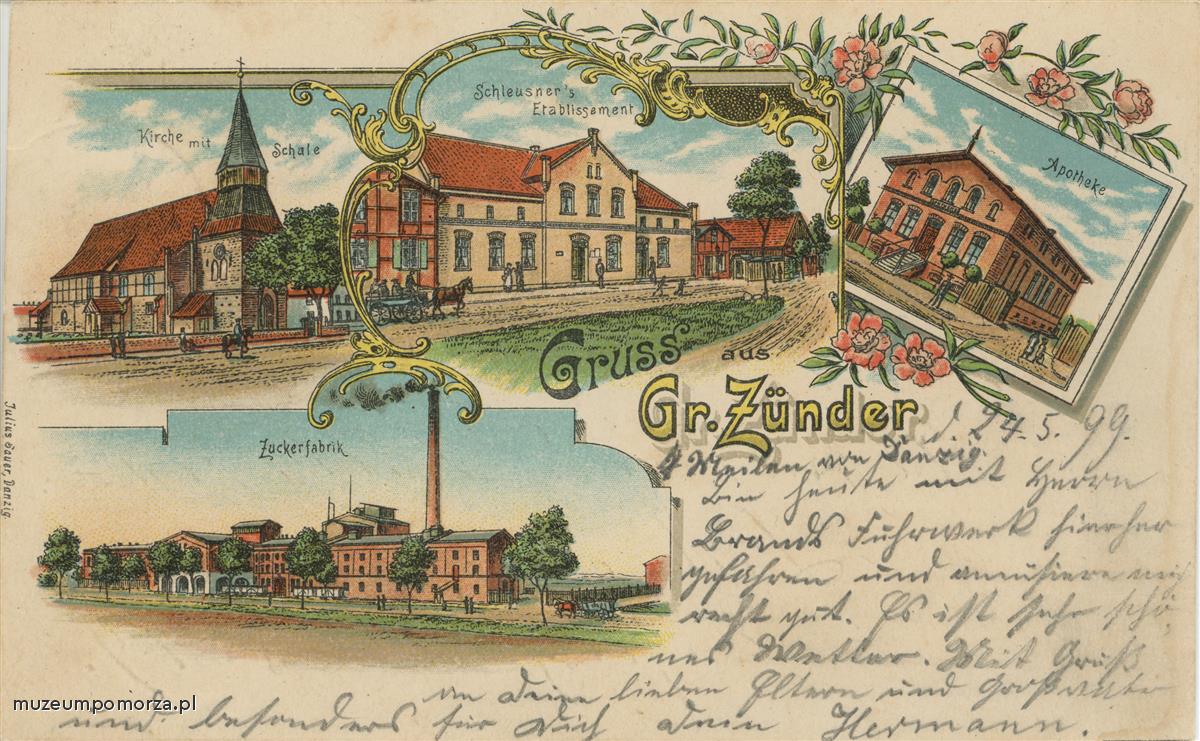 Kirche mit Schule
Schleusner's
Etablissement
Apotheke
Gruss aus
Gr. Zünder
Zuckerfabrik
Julius Sauer, Danzig
d. 24. 5. 99.
4 Meilen von Danzig.
Bin heute mit Herrn
Brands Fuhrwerk hierher
gefahren und amüsiere mich
recht gut. Es ist sehr schö-
nes Wetter. Mit Gruß
an Deine lieben Eltern und
und besonders für Dich dein Hermann.
muzeumpomorza.pl